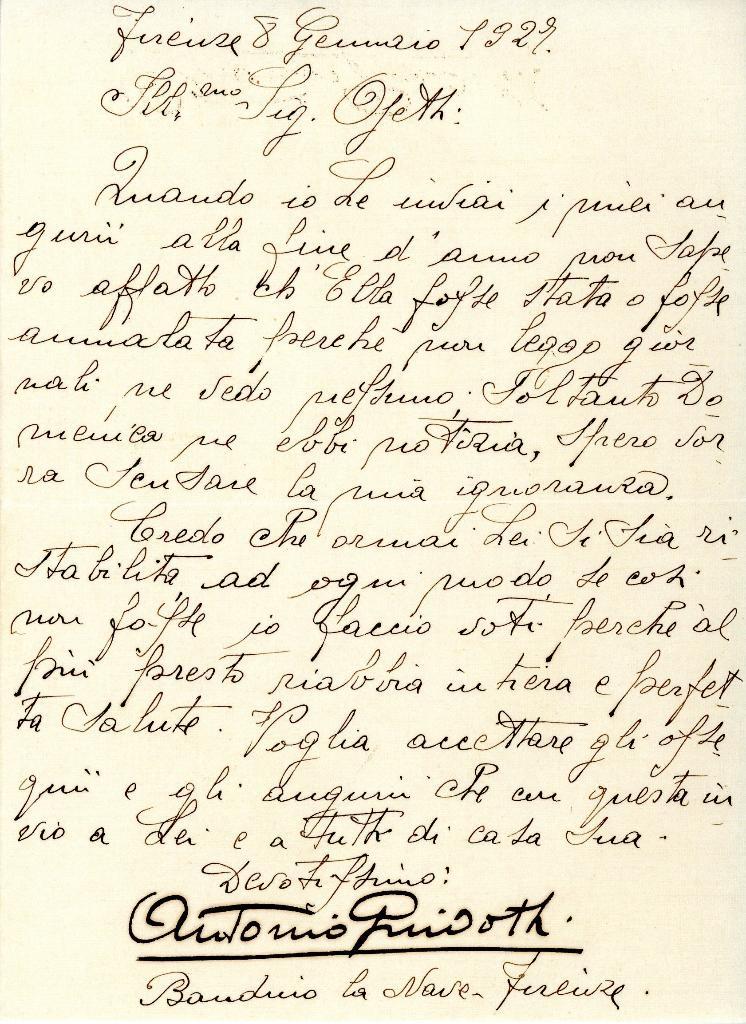 Firenze 8 Gennaio 1927.
Ill.mo Sig. Ojetti:
Quando io Le inviai i miei au
gurii alla fine d'anno non sape
vo affatto ch'Ella fosse stata o fosse
ammalata perchè non leggo gior
nali ne vedo nessuno. Soltanto Do
menica ne ebbi notizia, spero vor
ra scusare la mia ignoranza.
Credo che ormai Lei si sia ri
stabilita, ad ogni modo, se così
non fosse io faccio voti perchè al
più presto riabbia intiera e perfet
ta salute. Voglia accettare gli osse
quii e gli augurii che con questa in
vio a Lei e a tutti di casa Sua.
Devotissimo:
Antonio Guidotti.
Bandino la Nave - Firenze.